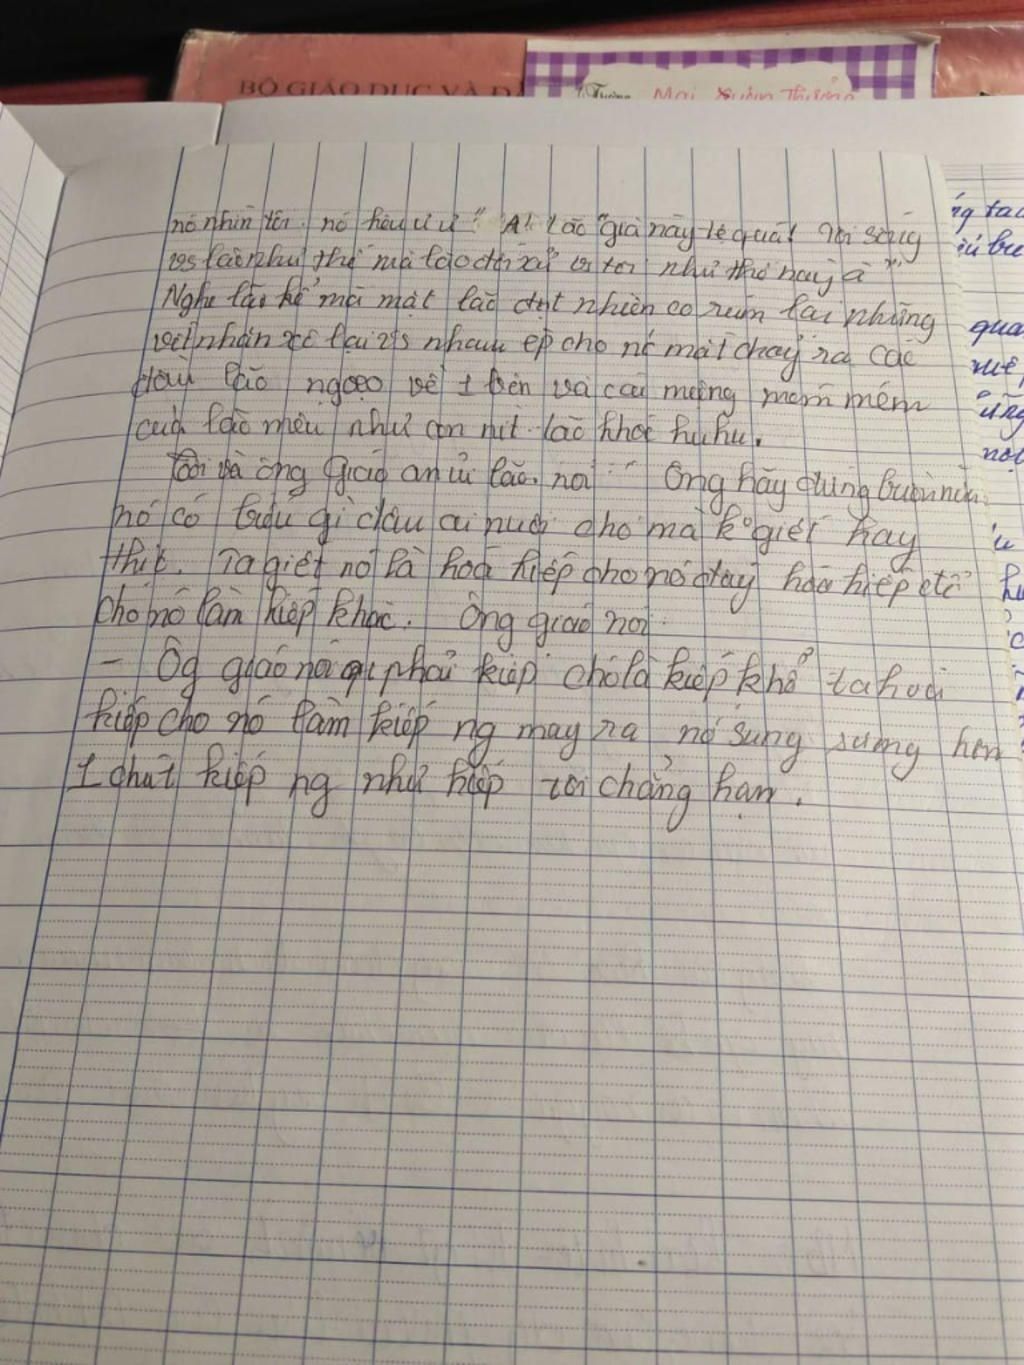 BỘ GIÁO DỤC VÀ
Trường Mai Xuân Thưởng
nó nhìn tôi. nó kêu ư ử " A! Lão già này tệ quá! Tôi sống
vs lão như thế mà lão đối xử vs tôi như thế này à".
Nghe lão kể mà mặt lão đột nhiên co rúm lại những
vết nhăn xô lại vs nhau ép cho nc mắt chảy ra Cái
đầu lão ngoẹo về 1 bên và cái miệng móm mém
của lão mếu như con nít. lão khóc huhu.
Tôi và ông Giáo an ủi lão. nói: " Ông hãy đừng buồn nữa
nó có hiểu gì đâu ai nuôi chó mà ko giết hay
thịt. Ta giết nó là hoá kiếp cho nó đấy hoá kiếp để
cho nó làm kiếp khác. Ông giáo nói:
- Ôg giáo nói phải kiếp chó là kiếp khổ ta hoá
kiếp cho nó làm kiếp ng may ra nó sung sướng hơn
1 chút kiếp ng như kiếp tôi chẳng hạn.
qua